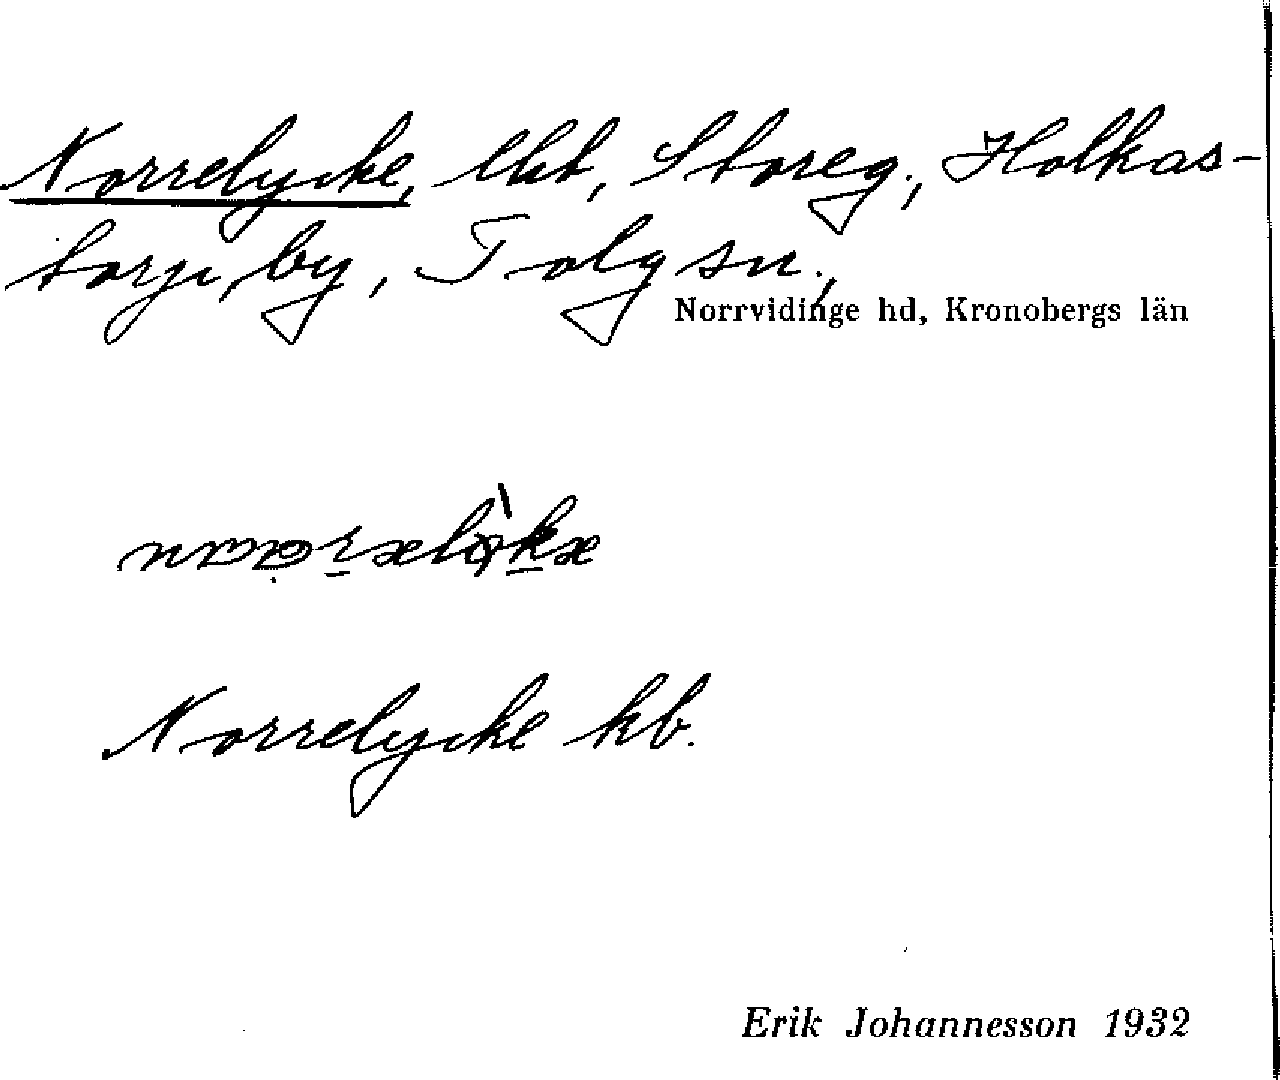 Norrelycke, lht, Storeg., Holkas-
torp, by, Tolg sn.,
Norrvidinge hd, Kronobergs län
Norrelycke kb.
Erik Johannesson 1932